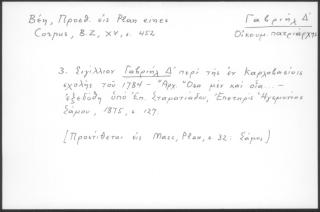 Βέη, Προσθ. εἰς Plan eines
Corpus, B.Z., XX, σ. 452
Γαβριήλ Δ´
Οἰκουμ. πατριάρχης
3. Σιγίλλιον Γαβριήλ Δ´ περὶ τῆς ἐν Καρλοβασίοις
σχολῆς τοῦ 1784 - "Ἀρχ. Ὅσα μεν καὶ οἷα... -
ἐξεδόθη ὑπὸ Ἐπ. Σταματιάδου, Ἐπετηρὶς Ἡγεμονίας
Σάμου, 1875, σ. 127.
[Προστίθεται εἰς Marc, Plan, σ. 32: Σάμος]